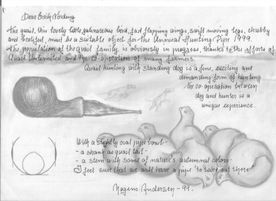 Dear Emily Nording
The quail, this lovely little subterraneous bird, fast flapping wings, swift moving legs, chubby
and helpful, must be a suitable object for the Annual Hunting Pipe 1999.
The population of the quail family is obviously in progress, thanks to the efforts of
Quail Unlimited and the co-operation of many farmers.
Quail hunting with standing dog is a fine, exciting and
demanding form of hunting
the co-operation between
dog and hunter is a
unique experience.
With a slightly oval pipe bowl -
a shank as quail tail -
a stem with some of nature's autumnal colors
I feel sure that we will have a pipe to save out there
Mogens Andersen - 99.